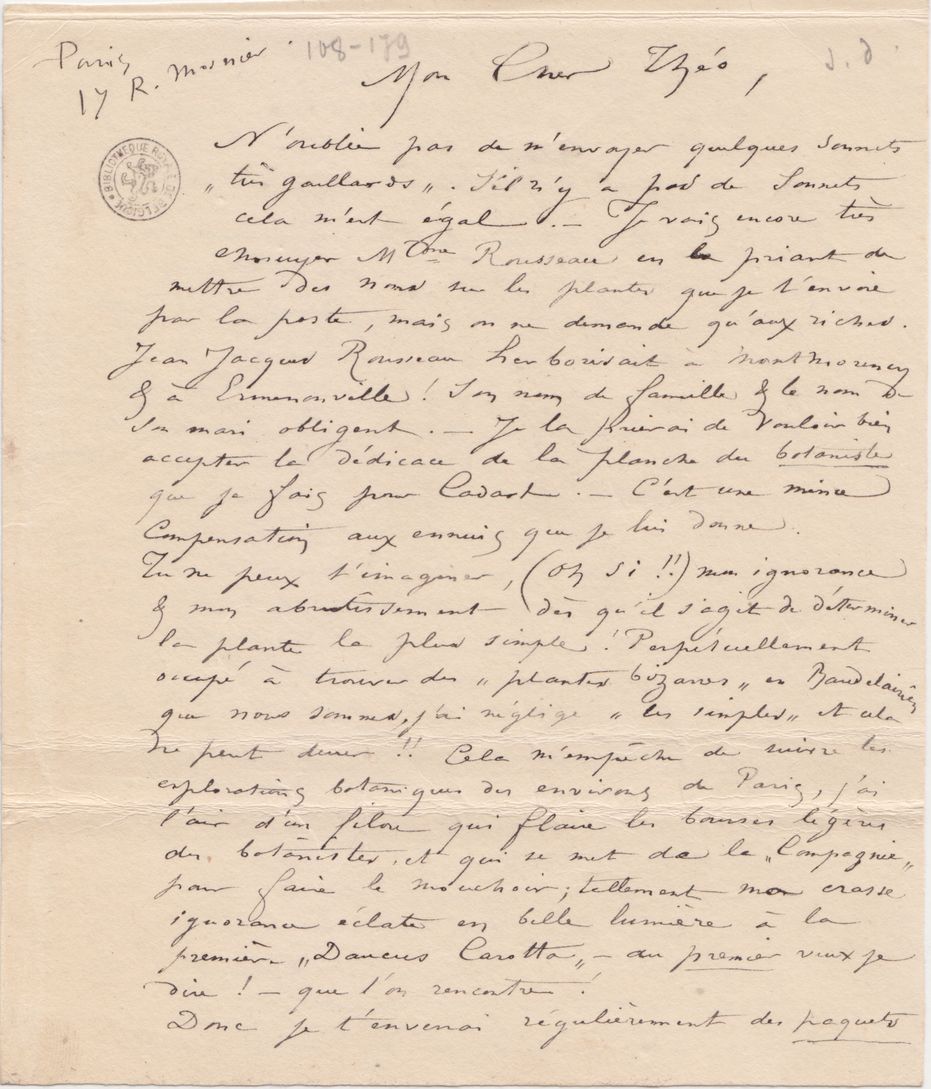 Paris
17 R. Mosnier
108-179
s. d.
Mon Cher Théo,
BIBLIOTHEQUE ROYALE DE BELGIQUE
N'oublie pas de m'envoyer quelques Sonnets
„très gaillards„. S'il n'y a pas de Sonnets
cela m'est égal. — Je vais encore très
ennuyer Mme Rousseau en la priant de
mettre des noms sur les plantes que je t'envoie
par la poste, mais on ne demande qu'aux riches.
Jean Jacques Rousseau herborisait à Montmorency
& à Ermenonville! Son nom de famille & le nom de
son mari obligent. — Je la prierai de vouloir bien
accepter la dédicace de la planche du botaniste
que je fais pour Cadart. — C'est une mince
compensation aux ennuis que je lui donne.
Tu ne peux t'imaginer, (oh si!!) mon ignorance
& mon abrutissement dès qu'il s'agit de déterminer
la plante la plus simple! Perpétuellement
occupé à trouver des „plantes bizarres„ en Baudelairiens
que nous sommes, j'ai négligé „les simples„ et cela
ne peut durer!! Cela m'empêche de suivre les
explorations botaniques des environs de Paris, j'ai
l'air d'un filou qui flaire les bourses légères
des botanistes, et qui se met de la „Compagnie„
pour faire le mouchoir; tellement ma crasse
ignorance éclate en belle lumière à la
première „Daucus Carotta„ — au premier veux je
dire! — que l'on rencontre!
Donc je t'enverrai régulièrement des paquets